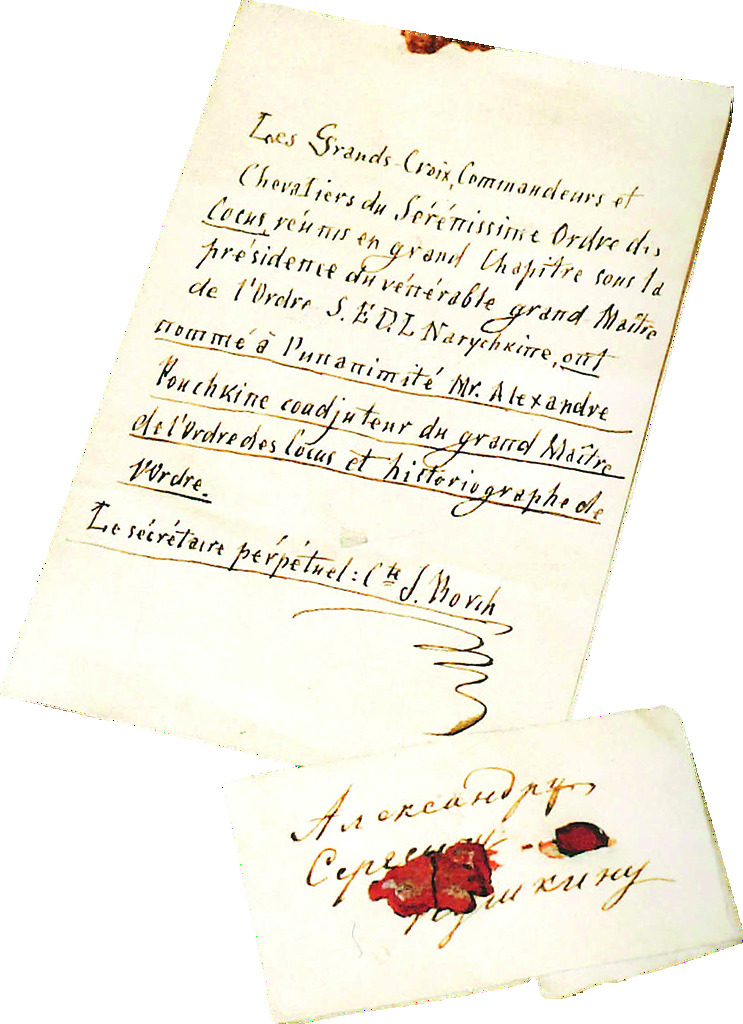 Les Grands-Croix, Commandeurs et
Chevaliers du Sérénissime Ordre des
Cocus, réunis en grand Chapitre sous la
présidence du vénérable grand Maître
de l'Ordre S. E D. L Narychkine, ont
nommé à l'unanimité Mr. Alexandre
Pouchkine coadjuteur du grand Maître
de l'Ordre des Cocus et historiographe de
l'Ordre.
Le sécrétaire perpétuel: Cte J. Borch
Александру
Сергеичу
Пушкину